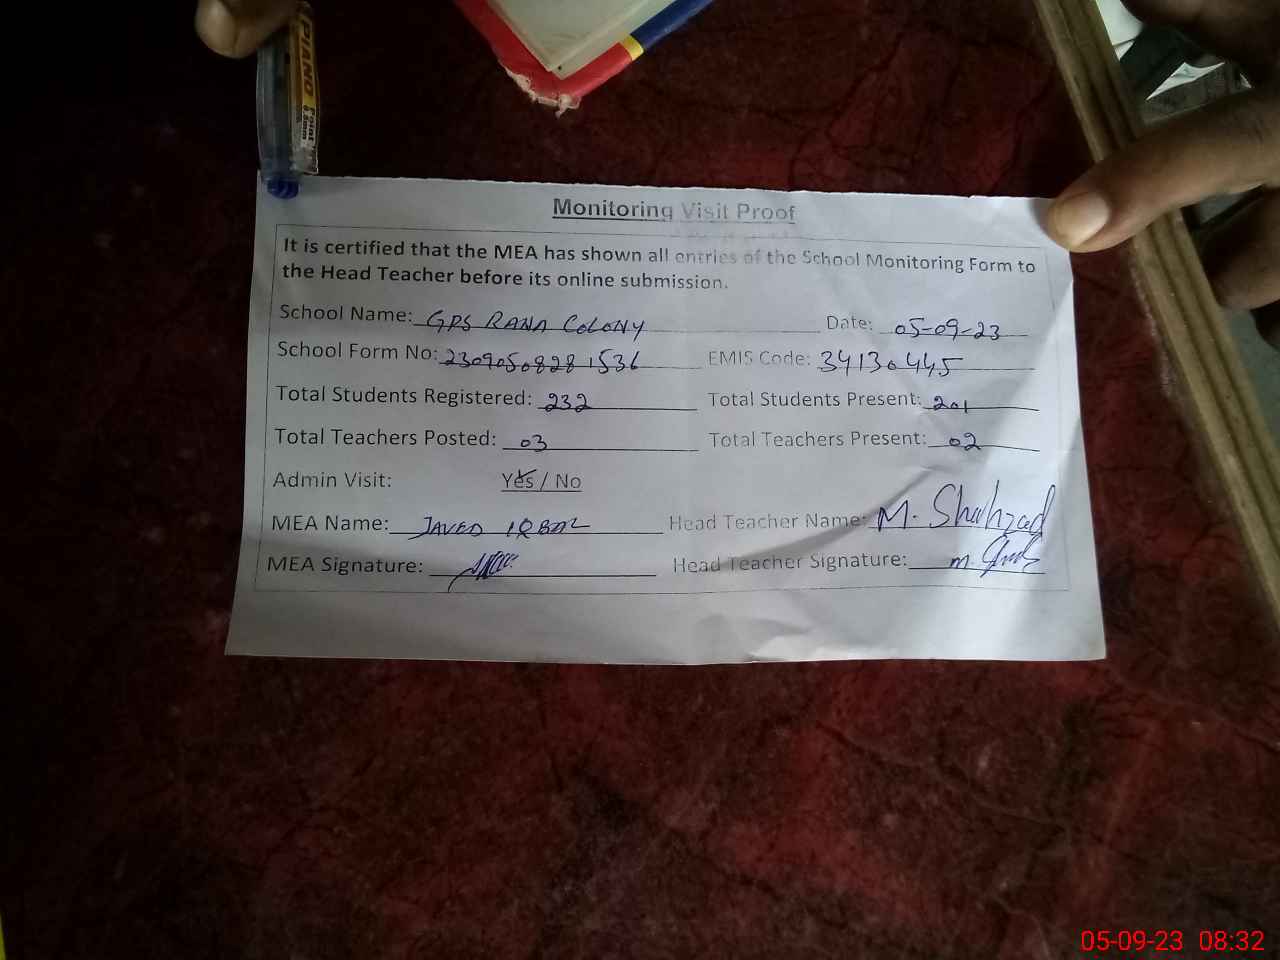 PIANO
Point
0.8mm
Monitoring Visit Proof
It is certified that the MEA has shown all entries of the School Monitoring Form to
the Head Teacher before its online submission.
School Name: GPS RANA COLONY Date: 05-09-23
School Form No: 23090508281536 EMIS Code: 34130445
Total Students Registered: 232 Total Students Present: 201
Total Teachers Posted: 03 Total Teachers Present: 02
Admin Visit: Yes / No
MEA Name: JAVED IQBAL Head Teacher Name: M. Shahzad
MEA Signature: Head Teacher Signature: M.
05-09-23 08:32